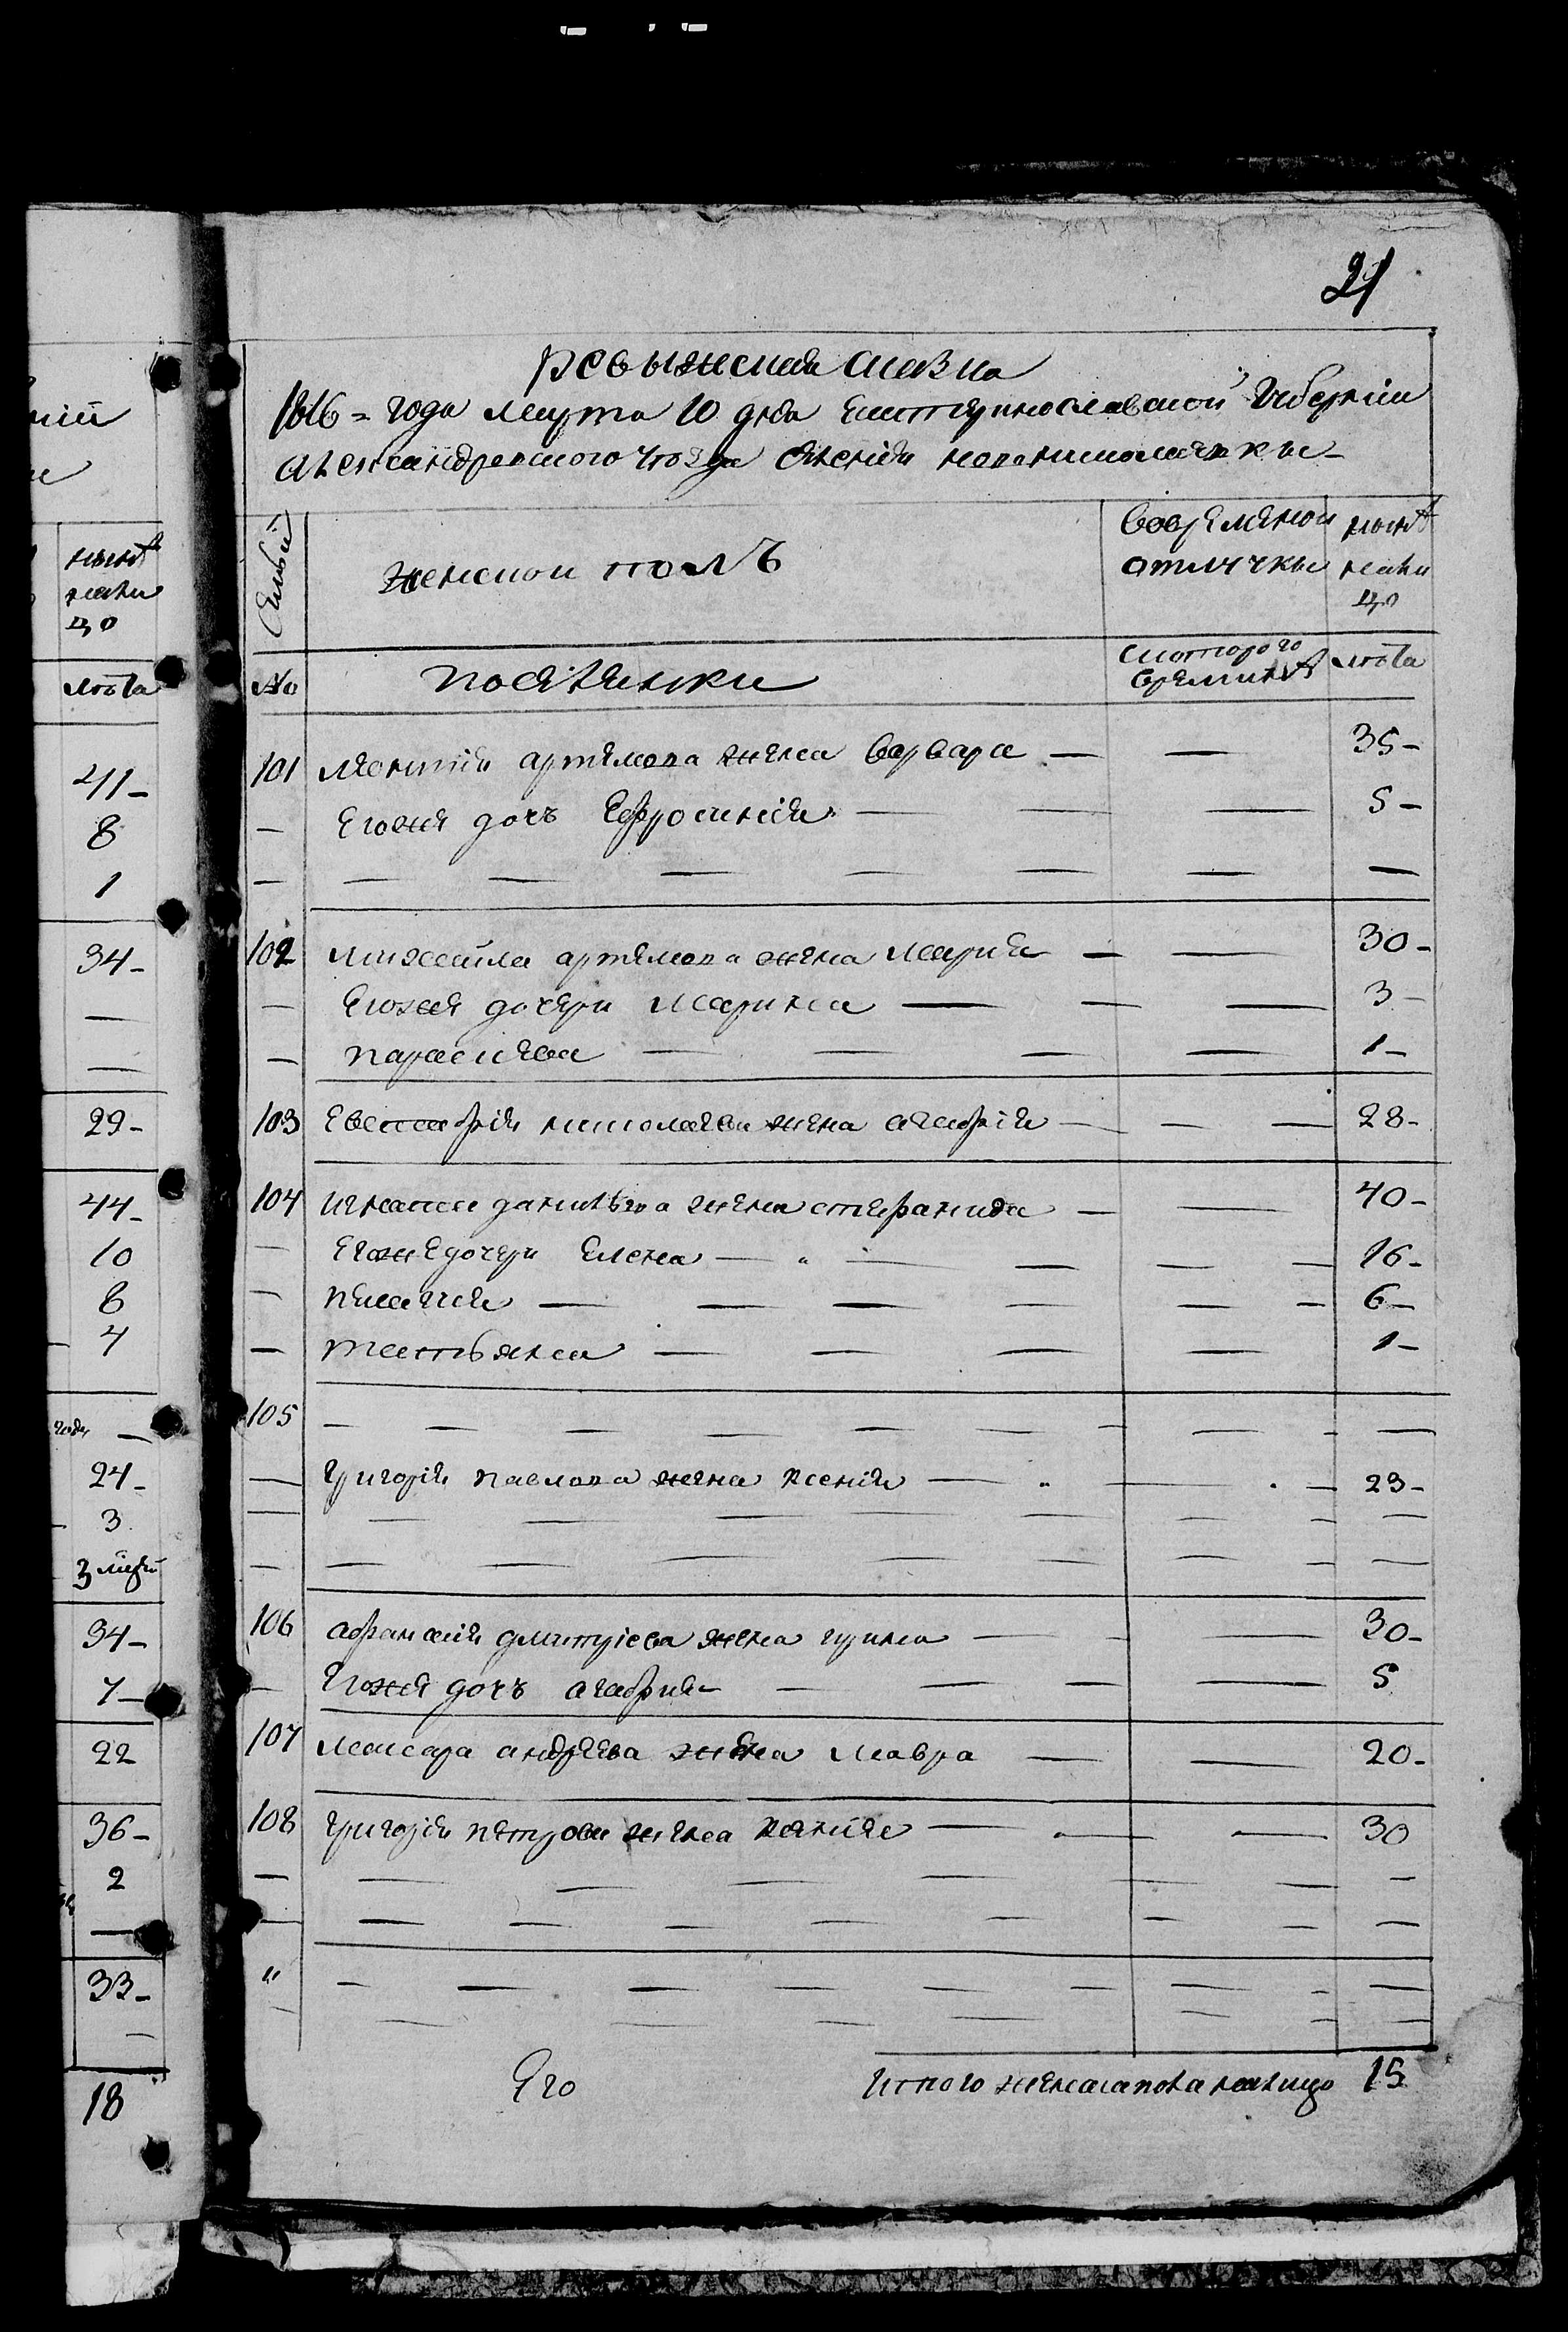 21
ревыжская скаска
1816 = года марта 10 дня Екатеринославской Губернии
александровского уезда селения новониколаевки
Семьи
женской полъ
Вовременой отлучкы
ныне налицо
№
поселянки
скоторого времини
лета
101 леонтия артемова жена варвара — — 35-
— Егоже дочь Ефросиния — — 5-
102 михайла артемова жена Мария — — 30-
— Егоже дочери Марина — — 3-
— параскева — — 1-
103 Евстафия николаева жена агафия — — 28-
104 игната данилова жена степанида — — 40-
— Егоже дочери Елена — — 16-
— пилагия — — 6-
— татьяна — — 1-
105 — — —
— григория павлова жена ксения — — 23-
106 афанасия дмитриева жена ирина — — 30-
— Егоже дочь агафия — — 5
107 макара андреева жена мавра — — 20-
108 григория петрова жена ксения — — 30
"
Его
Итого женска пола налицо 15
ныне нали цо
лета
41-
8
1
34-
—
—
29-
44-
10
6
4
года —
24-
3
34-
7-
22
36-
2
—
33-
18